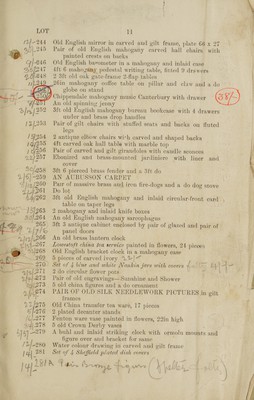 LOT 11
244 Old English mirror in carved and gilt frame, plate 66 x 27
245 Pair of old English mahogany carved hall chairs with
painted crests on backs
246 Old English barometer in a mahogany and inlaid case
247 4ft 6 mahogany pedestal writing table, fitted 9 drawers
248 2 5ft old oak gate-frame 2-flap tables
249 26in mahogany coffee table on pillar and claw and a do
globe on stand
Chippendale mahogany music Canterbury with drawer
38/-
251 An old spinning jenny
252 3ft old English mahogany bureau bookcase with 4 drawers
under and brass drop handles
253 Pair of gilt chairs with stuffed seats and backs on fluted
legs
254 2 antique elbow chairs with carved and shaped backs
255 4ft carved oak hall table with marble top
256 Pair of carved and gilt girandoles with candle sconces
257 Ebonized and brass-mounted jardiniere with liner and
cover
258 5ft 6 pierced brass fender and a 3ft do
259 AN AUBUSSON CARPET
260 Pair of massive brass and iron fire-dogs and a do dog stove
261 Do lot
262 3ft old English mahogany and inlaid circular-front card
table on taper legs
263 2 mahogany and inlaid knife boxes
264 An old English mahogany sarcophagus
265 3ft 3 antique cabinet enclosed by pair of glazed and pair of
panel doors
266 An old brass lantern clock
267 Lowestoft china tea service painted in flowers, 24 pieces
268 Old English bracket clock in a mahogany case
269 5 pieces of carved ivory
270 Set of 4 blue and white Nankin jars with covers
271 2 do circular lower pots
272 Pair of old engravings—Sunshine and Shower
273 5 old china figures and a do ornament
274 PAIR OF OLD SILK NEEDLEWORK PICTURES in gilt
frames
275 Old China transfer tea ware, 17 pieces
276 2 plated decanter stands
277 Fenton ware vase painted in flowers, 22in high
278 5 old Crown Derby vases
279 A buhl and inlaid striking clock with ormolu mounts and
figure over and bracket for same
280 Water colour drawing in carved and gilt frame
281 Set of 4 Sheffield plated dish covers
281A Pair Bronze figures